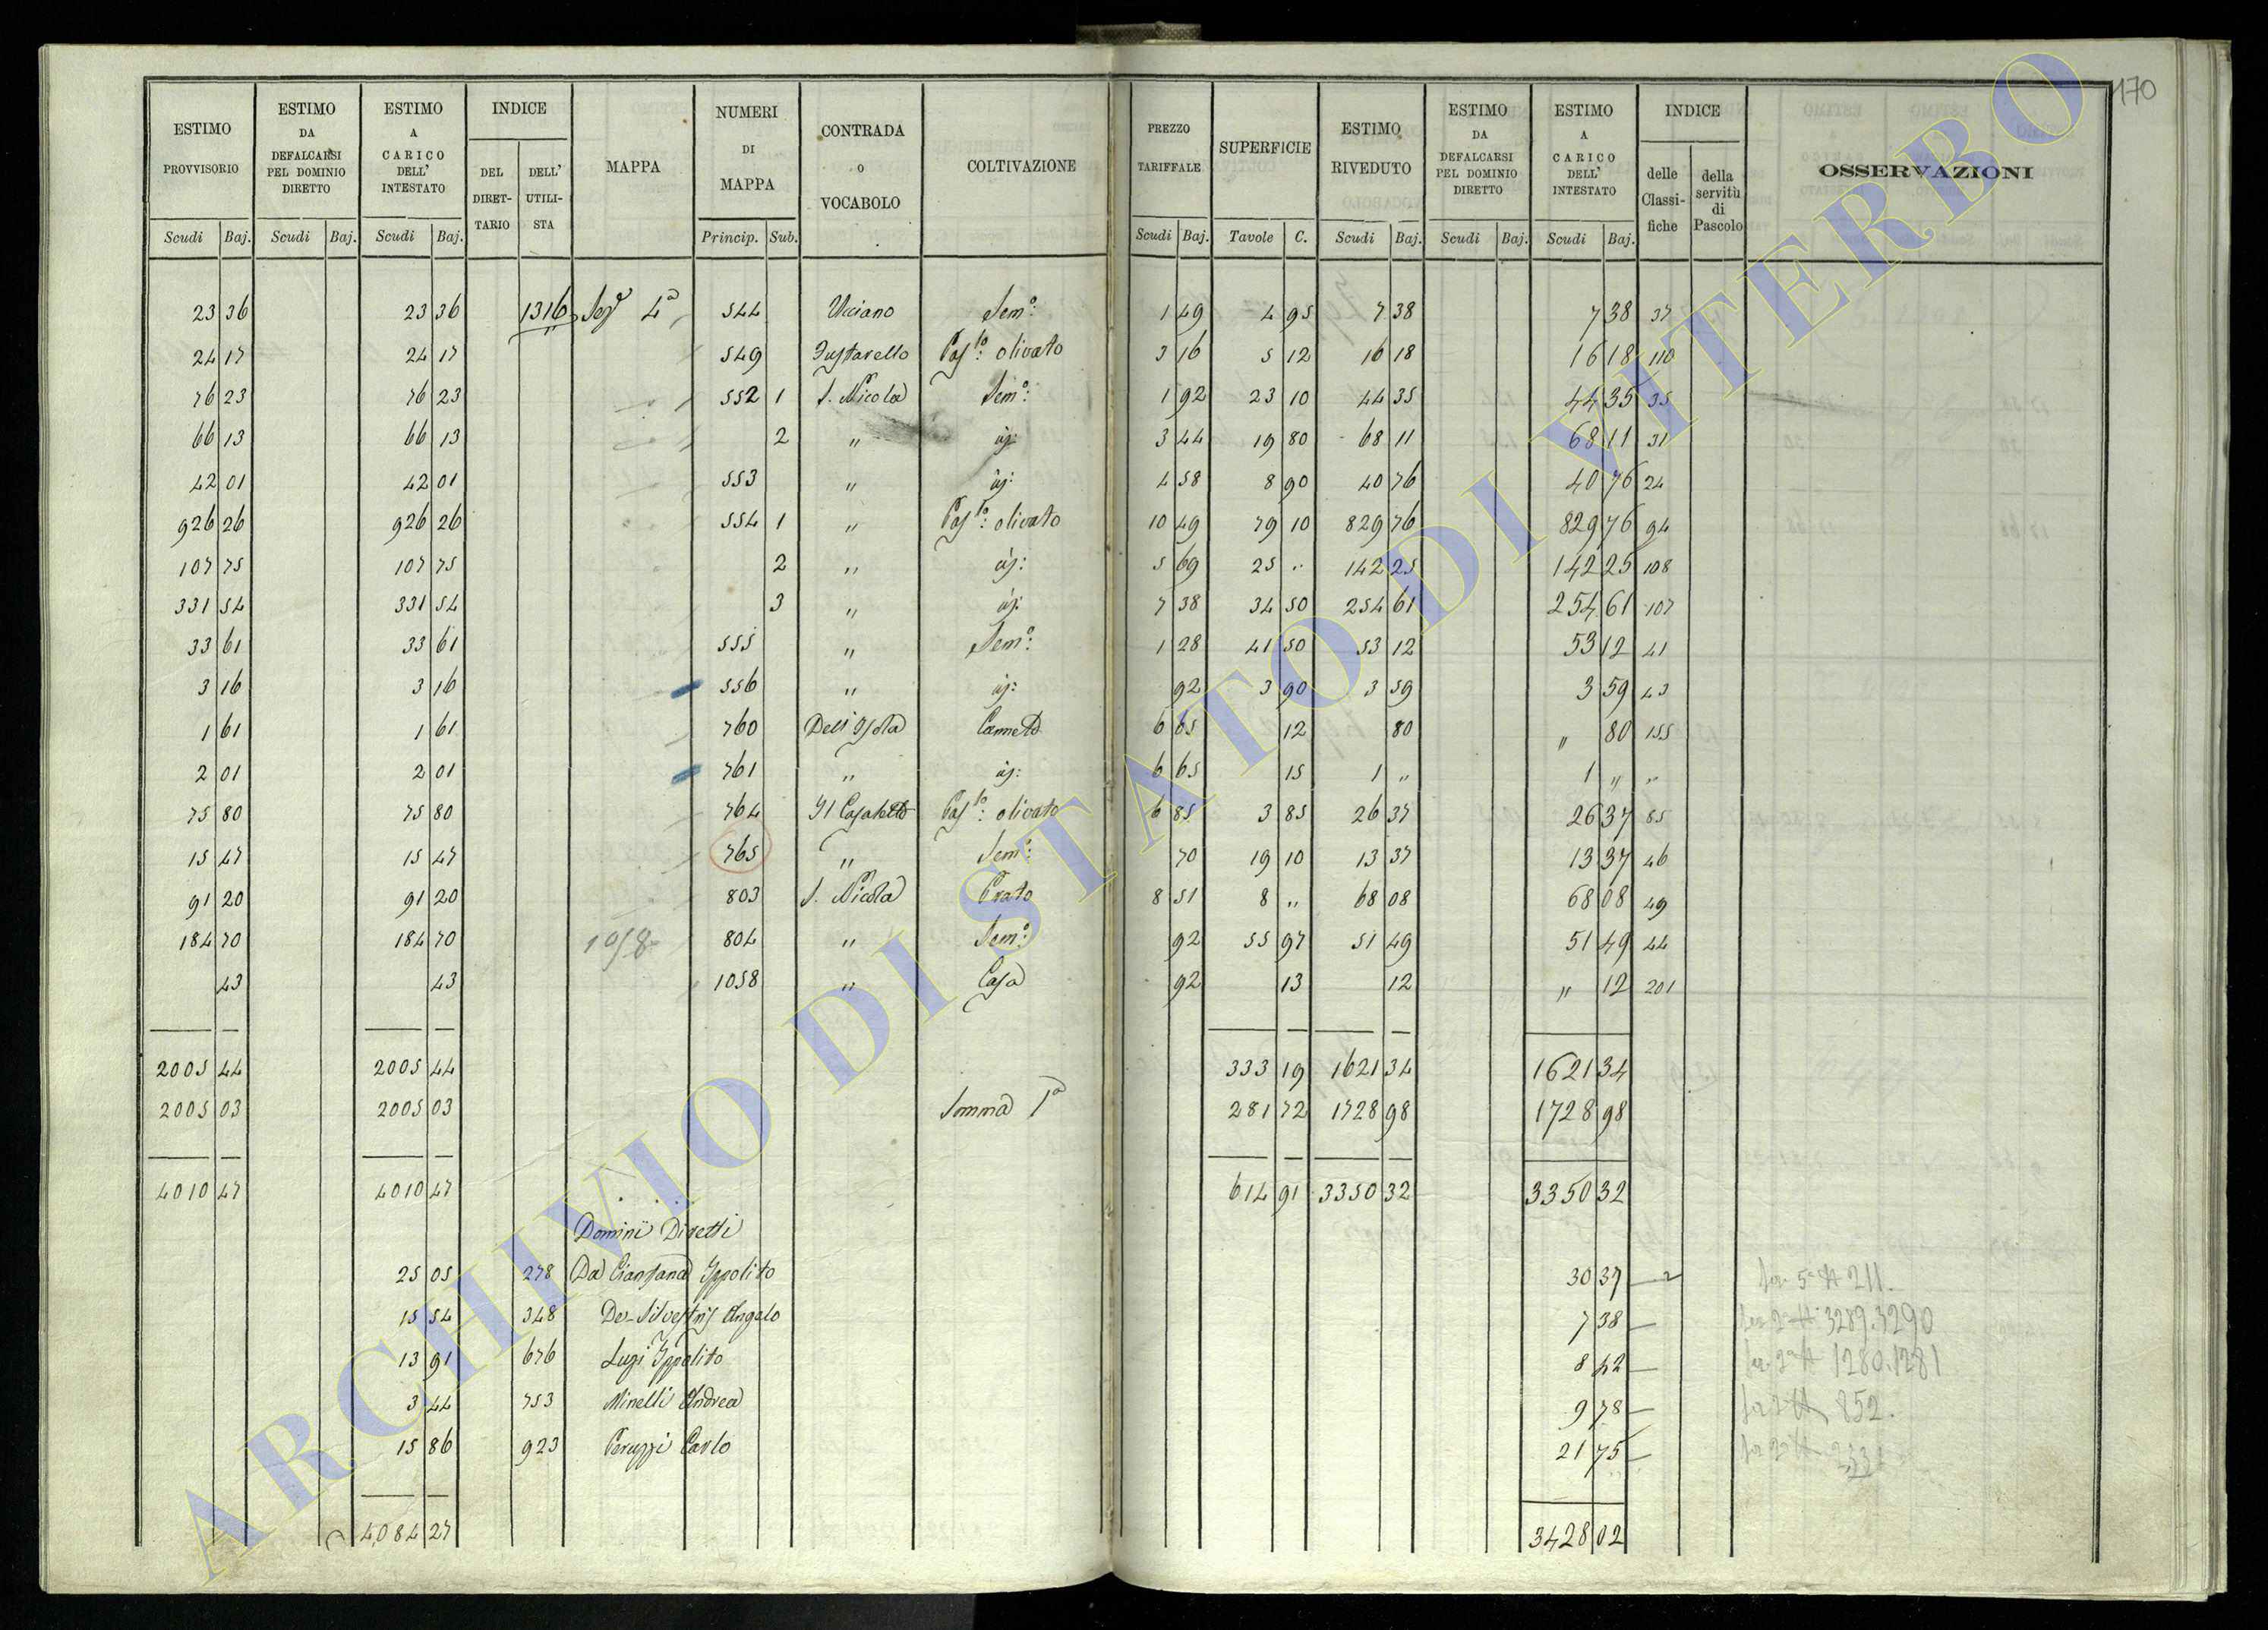 170
ESTIMO PROVVISORIO | ESTIMO DA DEFALCARSI PEL DOMINIO DIRETTO | ESTIMO A CARICO DELL' INTESTATO | INDICE | MAPPA | NUMERI DI MAPPA | CONTRADA o VOCABOLO | COLTIVAZIONE | PREZZO TARIFFALE | SUPERFICIE | ESTIMO RIVEDUTO | ESTIMO DA DEFALCARSI PEL DOMINIO DIRETTO | ESTIMO A CARICO DELL' INTESTATO | INDICE | OSSERVAZIONI
DEL DIRETTARIO | DELL' UTILISTA | delle Classifiche | della servitù di Pascolo
Scudi Baj. | Scudi Baj. | Scudi Baj. | Princip. Sub. | Scudi Baj. | Tavole C. | Scudi Baj. | Scudi Baj. | Scudi Baj.
23 36 | 23 36 | 1316 | Sez. 4a | 544 | Ucciano | Sem.o | 1 49 | 4 95 | 7 38 | 7 38 | 37
24 17 | 24 17 | 549 | Fustarello | Pas.to olivato | 3 16 | 5 12 | 16 18 | 16 18 | 110
76 23 | 76 23 | 552 1 | S. Nicola | Sem.o | 1 92 | 23 10 | 44 35 | 44 35 | 35
66 13 | 66 13 | 2 | " | | 3 44 | 19 80 | 68 11 | 68 11 | 31
42 01 | 42 01 | 553 | " | | 4 58 | 8 90 | 40 76 | 40 76 | 24
926 26 | 926 26 | 554 1 | " | Pas.to olivato | 10 49 | 79 10 | 829 76 | 829 76 | 94
107 75 | 107 75 | 2 | " | | 5 69 | 25 " | 142 25 | 142 25 | 108
331 54 | 331 54 | 3 | " | | 7 38 | 34 50 | 254 61 | 254 61 | 107
33 61 | 33 61 | 555 | " | Sem.o | 1 28 | 41 50 | 53 12 | 53 12 | 41
3 16 | 3 16 | 556 | " | | 92 | 3 90 | 3 59 | 3 59 | 43
1 61 | 1 61 | 760 | Dell'Isola | Canneto | 6 65 | 12 | 80 | " 80 | 155
2 01 | 2 01 | 761 | " | | 6 65 | 15 | 1 " | 1 " | "
75 80 | 75 80 | 764 | Il Casaletto | Pas.to olivato | 6 85 | 3 85 | 26 37 | 26 37 | 85
15 47 | 15 47 | 765 | " | Sem.o | 70 | 19 10 | 13 37 | 13 37 | 46
91 20 | 91 20 | 803 | S. Nicola | Prato | 8 51 | 8 " | 68 08 | 68 08 | 49
184 70 | 184 70 | 1058 | 804 | " | Sem.o | 92 | 55 97 | 51 49 | 51 49 | 44
43 | 43 | 1058 | " | Casa | 92 | 13 | 12 | " 12 | 201
2005 44 | 2005 44 | 333 19 | 1621 34 | 1621 34
2005 03 | 2005 03 | Somma 1a | 281 72 | 1728 98 | 1728 98
4010 47 | 4010 47 | 614 91 | 3350 32 | 3350 32
Dominii Diretti
25 05 | 278 | Da Ciansana Ippolito | 30 37 | Sez. 5a 211.
15 54 | 348 | De-Silvestris Angelo | 7 38 | Sez. 2a 3289.3290
13 91 | 676 | Luzi Ippolito | 8 42 | Sez. 2a 1280.1281
3 44 | 753 | Minelli Andrea | 9 78 | Sez. 2a 852.
15 86 | 923 | Peruzzi Carlo | 21 75 | Sez. 2a
4,084 27 | 3428 02
ARCHIVIO DI STATO DI VITERBO